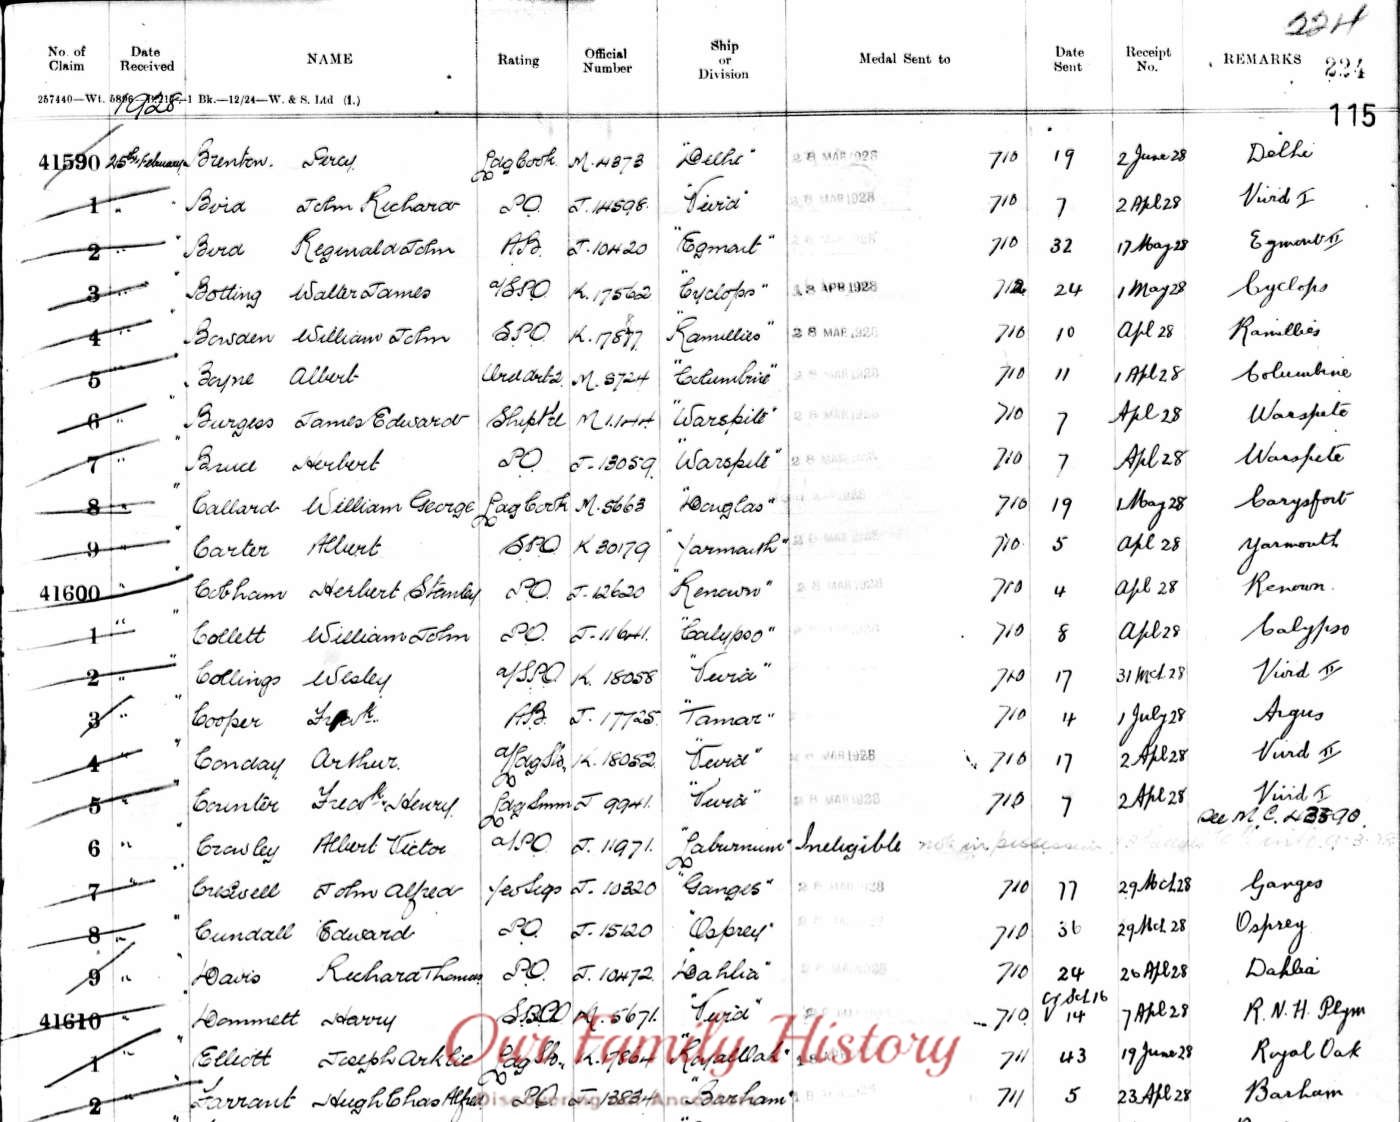 224
No. of Claim Date Received NAME Rating Official Number Ship or Division Medal Sent to Date Sent Receipt No. REMARKS 224
257440—Wt. 5896 1928 1 Bk.—12/24—W. & S. Ltd (1.)
115
41590 25th February Brenton. Percy Ldg Cook M. 4373 "Delhi" 28 MAR 1928 710 19 2 June 28 Delhi
1 " " Bird John Richard PO. J. 14598. "Vivid" 28 MAR 1928 710 7 2 Apl 28 Vivid I
2 " " Bird Reginald John AB. J. 10420 "Egmont" 710 32 17 May 28 Egmont II
3 " " Botting Walter James a/SPO. K. 17562 "Cyclops" 18 APR 1928 712 24 1 May 28 Cyclops
4 " " Bowden William John SPO. K. "Ramillies" 28 MAR 1928 710 10 Apl 28 Ramillies
5 " " Boyne Albert M. 5724 "Columbine" 28 MAR 1928 710 11 1 Apl 28 Columbine
6 " " Burgess James Edward M. 1144 "Warspite" 28 MAR 1928 710 7 Apl 28 Warspite
7 " " Bruce Herbert PO. J. 13059. "Warspite" 28 MAR 1928 710 7 Apl 28 Warspite
8 " " Callard William George Ldg Cook M. 5663 "Douglas" 710 19 1 May 28 Carysfort
9 " " Carter Albert SPO. K 30179 "Yarmouth" 710. 5 Apl 28 Yarmouth
41600 " " Cobham Herbert Stanley PO. J. 12620 "Renown" 28 MAR 1928 710 4 Apl 28 Renown.
1 " " Collett William John PO. J. 11641. "Calypso" 710 8 Apl 28 Calypso
2 " " Collings Wesley a/SPO. K. 18058 "Vivid" 710 17 31 Mch 28 Vivid II
3 " " Cooper Fredk. AB. J. 17725. "Tamar" 710 4 1 July 28 Argus
4 " " Conday Arthur. a/Ldg Sto. K. 18052. "Vivid" 28 MAR 1928 710 17 2 Apl 28 Vivid II
5 " " Counter Fredk. Henry. Ldg Smn J 9941. "Vivid" 28 MAR 1928 710 7 2 Apl 28 Vivid I
see M.C. 43590.
6 " Crowley Albert Victor a/PO. J. 11971. "Laburnum" Ineligible not in possession
7 " " Creswell John Alfred Yeo Sigs J. 10320 "Ganges" 28 MAR 1928 710 77 29 Mch 28 Ganges
8 " " Cundall Edward PO. J. 15120 "Osprey" 710 36 29 Mch 28 Osprey
9 " " Davis Richard Thomas PO. J. 10472. "Dahlia" 28 MAR 1928 710 24 26 Apl 28 Dahlia
41610 " " Dommett Harry M. 5671. "Vivid" 710. 14 7 Apl 28 R. N. H. Plym
1 " " Elliott Joseph Arklie Ldg Sto. K. 17864 "Royal Oak" 711 43 19 June 28 Royal Oak
2 " " Farrant Hugh Chas Alfred PO J. 13834 "Barham" 711 5 23 Apl 28 Barham
Our Family History